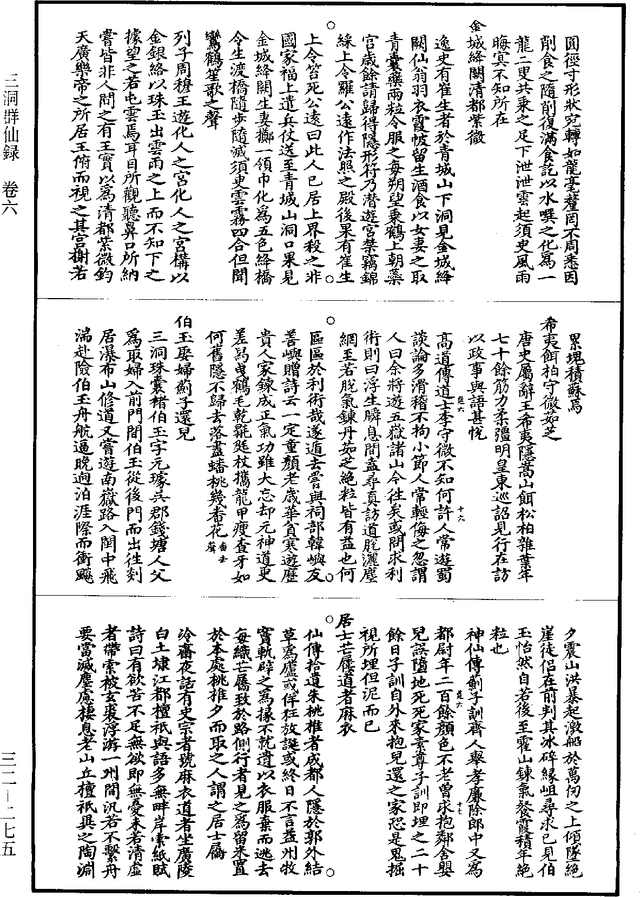 三洞群仙録　卷六
三二—二七五
圓徑寸形狀宛轉如龍毫釐罔不周悉因
削食之隨削復滿食訖以水噀之化為一
龍二叟共乘之足下泄泄雲起須臾風雨
晦冥不知所在
金城絳闕清都紫微
逸史有崔生者於青城山下洞見金城絳
闕仙翁羽衣霞帔留生酒食以女妻之取
青囊藥兩粒令服之每朔望乘鶴上朝蘂
宮歲餘請歸得隱形符乃潜遊宮禁竊錦
綵上令羅公遠作法照之殿後果有崔生
上令笞死公遠曰此人已居上界殺之非
國家福上遣兵仗送至青城山洞口果見
金城絳闕生妻擲一領巾化為五色絳橋
令生渡橋隨步隨滅須臾雲霧四合但聞
鸞鶴笙歌之聲
列子周穆王遊化人之宮化人之宮構以
金銀絡以珠玉出雲雨之上而不知下之
據望之若屯雲焉耳目所觀聽鼻口所納
嘗皆非人間之有王實以為清都紫微鈞
天廣樂帝之所居王俯而視之其宮榭若
累塊積蘇焉
希夷餌柏守微如芝
唐史屬辭王希夷隱嵩山餌松柏雜葉年
七十餘筋力柔彊明皇東巡詔見行在訪
以政事與語甚悅
高道傳道士李守微不知何許人常遊蜀
談論多滑稽不拘小節人常輕侮之忽謂
人曰余將遊五嶽諸山今往矣或問求利
術則曰浮生瞬息間盍尋真訪道脫灑塵
網至若脫氣鍊丹如芝絶粒皆有益也何
區區於利術哉遂遁去嘗與祠部韓嶼友
善嶼贈詩云一定童顏老歲華貪寒遊歷
貴人家鍊成正氣功雖大忘却元神道更
差曷曳鶴毛乾毿毿杖攜龍甲瘦查牙如
何舊隱不歸去落盡蟠桃幾番花
伯玉娶婦薊子還兒
三洞珠囊褚伯玉字元璩吳郡錢塘人父
為取婦入前門間伯玉從後門而出往剡
居瀑布山修道又嘗遊南嶽路入閩中飛
湍赴險伯玉舟航逼晚迥泊涯際而衝飈
夕震山洪暴起激船於萬仞之上傾墜絶
崖徒侶在前判其冰碎緣岨尋求已見伯
玉怡然自若後至霍山鍊氣餐霞積年絶
粒也
神仙傳薊子訓齊人舉孝廉除郎中又為
都尉年二百餘顏色不老曾求抱鄰舍嬰
兒誤隨地死死家素尊子訓即埋之二十
餘日子訓自外來抱兒還之家恐是鬼掘
視所埋但泥而已
居士芒屩道者麻衣
仙傳拾遺朱桃椎者成都人隱於郭外結
草為廬或佯狂放誕或終日不言益州牧
竇軌辟之為掾不就遺以衣服棄而逃去
每織芒屩致於路側行者見之為留米置
於本處桃椎夕而取之人謂之居士屩
冷齋夜話有史宗者號麻衣道者坐廣陵
白土埭江都檀祇與語多無畔岸索紙賦
詩曰有欲苦不足無欲即無憂未若清虛
者帶索被玄裘浮游一州間汎若不繫舟
要當滅塵慮棲息老山丘檀祇具之陶淵